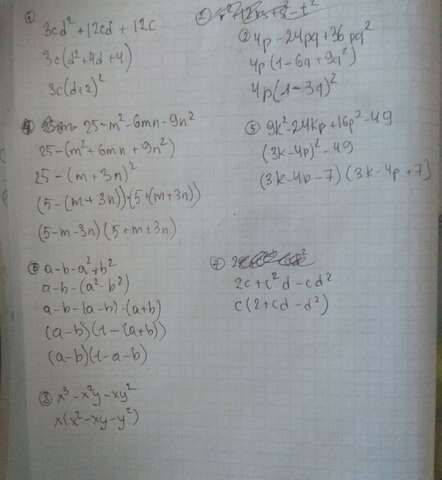 ①
3cd² + 12cd + 12c
3c(d²+4d+4)
3c(d+2)²
② 4p - 24pq + 36pq²
4p(1-6q+9q²)
4p(1-3q)²
25-m²-6mn-9n²
25-(m²+6mn+9n²)
25-(m+3n)²
(5-(m+3n))·(5+(m+3n))
(5-m-3n)(5+m+3n)
⑤ 9k²-24kp+16p²-49
(3k-4p)²-49
(3k-4p-7)(3k-4p+7)
⑥ a-b-a²+b²
a-b-(a²-b²)
a-b-(a-b)·(a+b)
(a-b)(1-(a+b))
(a-b)(1-a-b)
⑦
2c+c²d-cd²
c(2+cd-d²)
⑧ x³-x²y-xy²
x(x²-xy-y²)